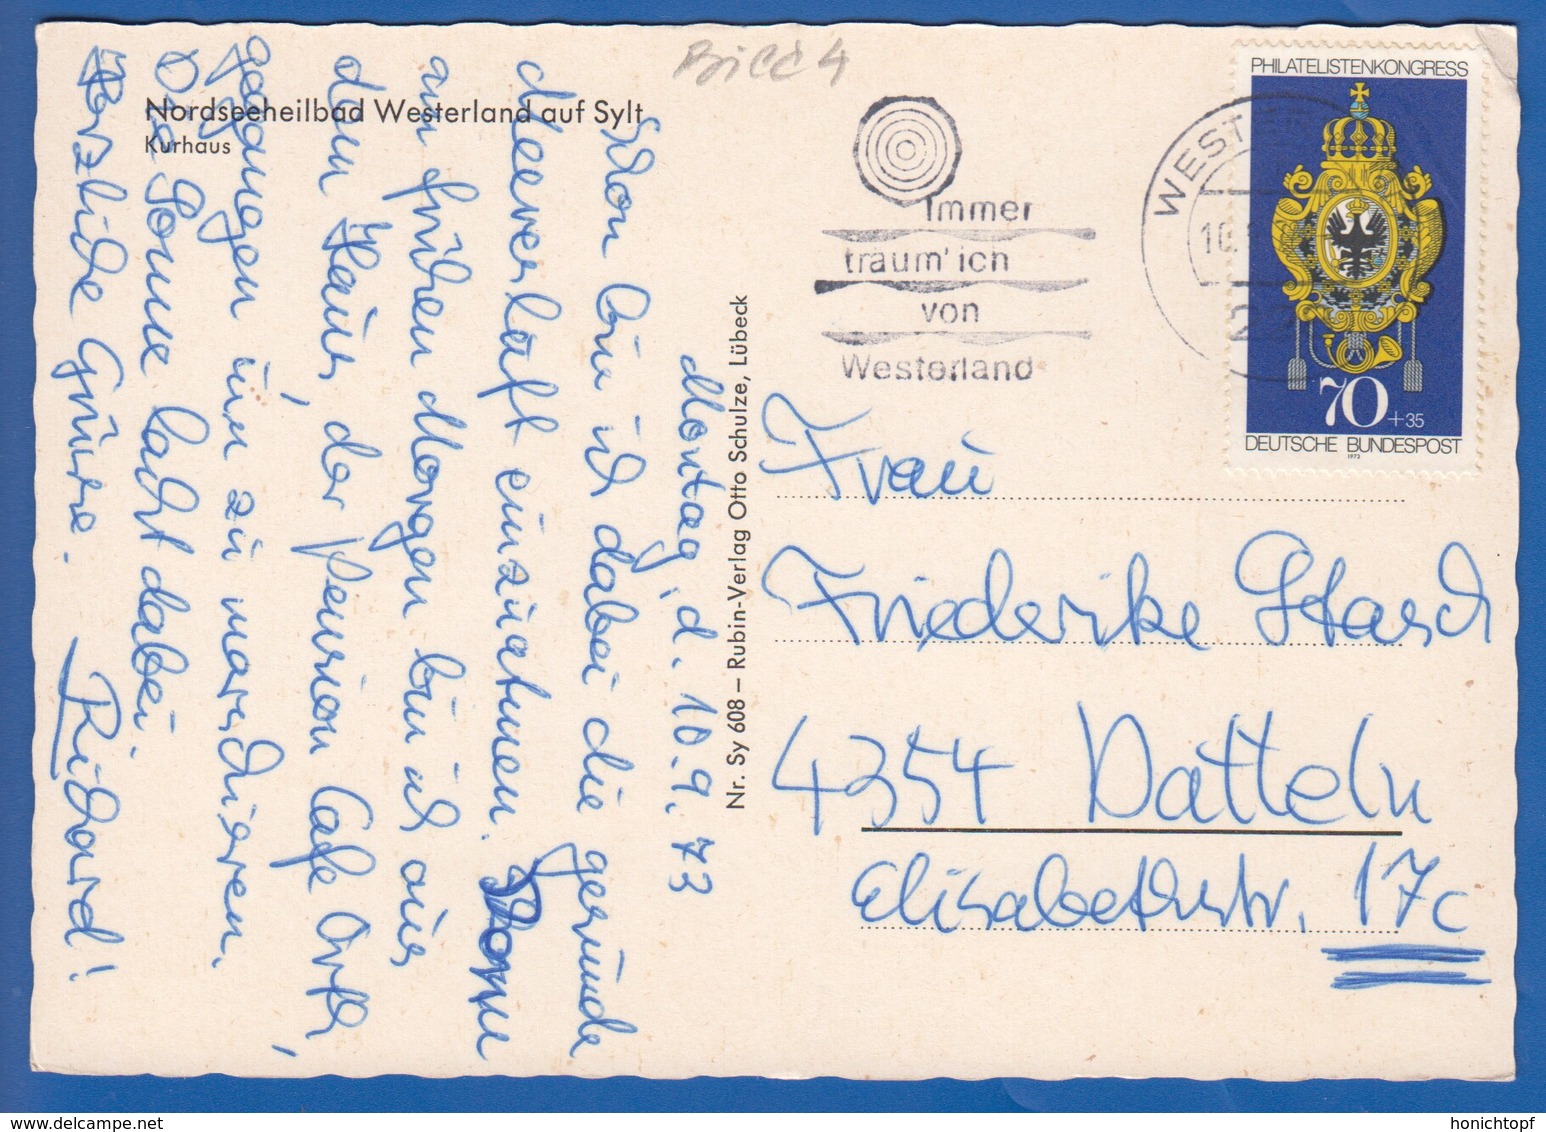 Nordseeheilbad Westerland auf Sylt
Kurhaus
Bild 4
Montag, d. 10. 9. 73
Schon bin ich dabei die gesunde
Meeresluft einzuatmen. Denn
am frühen Morgen bin ich aus
dem Haus, der Pension Café Orth,
gegangen um zu marschieren.
Die Sonne lacht dabei.
Herzliche Grüsse.
Richard!
Nr. Sy 608 – Rubin-Verlag Otto Schulze, Lübeck
Immer
träum' ich
von
Westerland
WEST
10.
PHILATELISTENKONGRESS
70 +35
DEUTSCHE BUNDESPOST
1973
Frau
Friederike Stasch
4354 Datteln
Elisabethstr. 17c
honichtopf